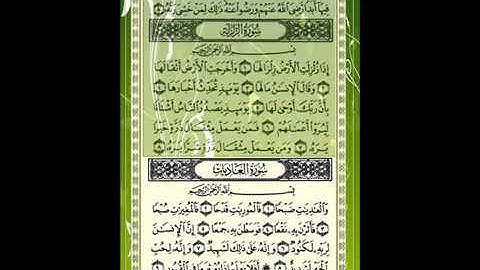 فِيهَا أَبَدًا رَّضِيَ اللَّهُ عَنْهُمْ وَرَضُوا عَنْهُ ذَٰلِكَ لِمَنْ خَشِيَ رَبَّهُ ٨
سُورَةُ الزَّلْزَلَةِ
بِسْمِ اللَّهِ الرَّحْمَٰنِ الرَّحِيمِ
إِذَا زُلْزِلَتِ الْأَرْضُ زِلْزَالَهَا ١ وَأَخْرَجَتِ الْأَرْضُ أَثْقَالَهَا
٢ وَقَالَ الْإِنسَانُ مَا لَهَا ٣ يَوْمَئِذٍ تُحَدِّثُ أَخْبَارَهَا ٤
بِأَنَّ رَبَّكَ أَوْحَىٰ لَهَا ٥ يَوْمَئِذٍ يَصْدُرُ النَّاسُ أَشْتَاتًا
لِّيُرَوْا أَعْمَالَهُمْ ٦ فَمَن يَعْمَلْ مِثْقَالَ ذَرَّةٍ خَيْرًا
يَرَهُ ٧ وَمَن يَعْمَلْ مِثْقَالَ ذَرَّةٍ شَرًّا يَرَهُ ٨
سُورَةُ الْعَادِيَاتِ
بِسْمِ اللَّهِ الرَّحْمَٰنِ الرَّحِيمِ
وَالْعَادِيَاتِ ضَبْحًا ١ فَالْمُورِيَاتِ قَدْحًا ٢ فَالْمُغِيرَاتِ صُبْحًا
٣ فَأَثَرْنَ بِهِ نَقْعًا ٤ فَوَسَطْنَ بِهِ جَمْعًا ٥ إِنَّ الْإِنسَانَ
لِرَبِّهِ لَكَنُودٌ ٦ وَإِنَّهُ عَلَىٰ ذَٰلِكَ لَشَهِيدٌ ٧ وَإِنَّهُ لِحُبِّ
الْخَيْرِ لَشَدِيدٌ ٨ أَفَلَا يَعْلَمُ إِذَا بُعْثِرَ مَا فِي الْقُبُورِ ٩